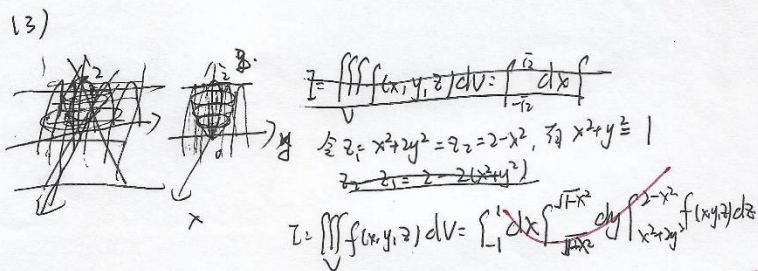 (3)
I=∭_V f(x,y,z)dV=∫_{-√2}^{√2}dx∫
令z₁=x²+2y²=z₂=2-x², 得 x²+y²=1
z₂-z₁=2-2(x²+y²)
I=∭_V f(x,y,z)dV=∫_{-1}^{1}dx∫_{-√(1-x²)}^{√(1-x²)}dy∫_{x²+2y²}^{2-x²}f(x,y,z)dz
2
2
y
x